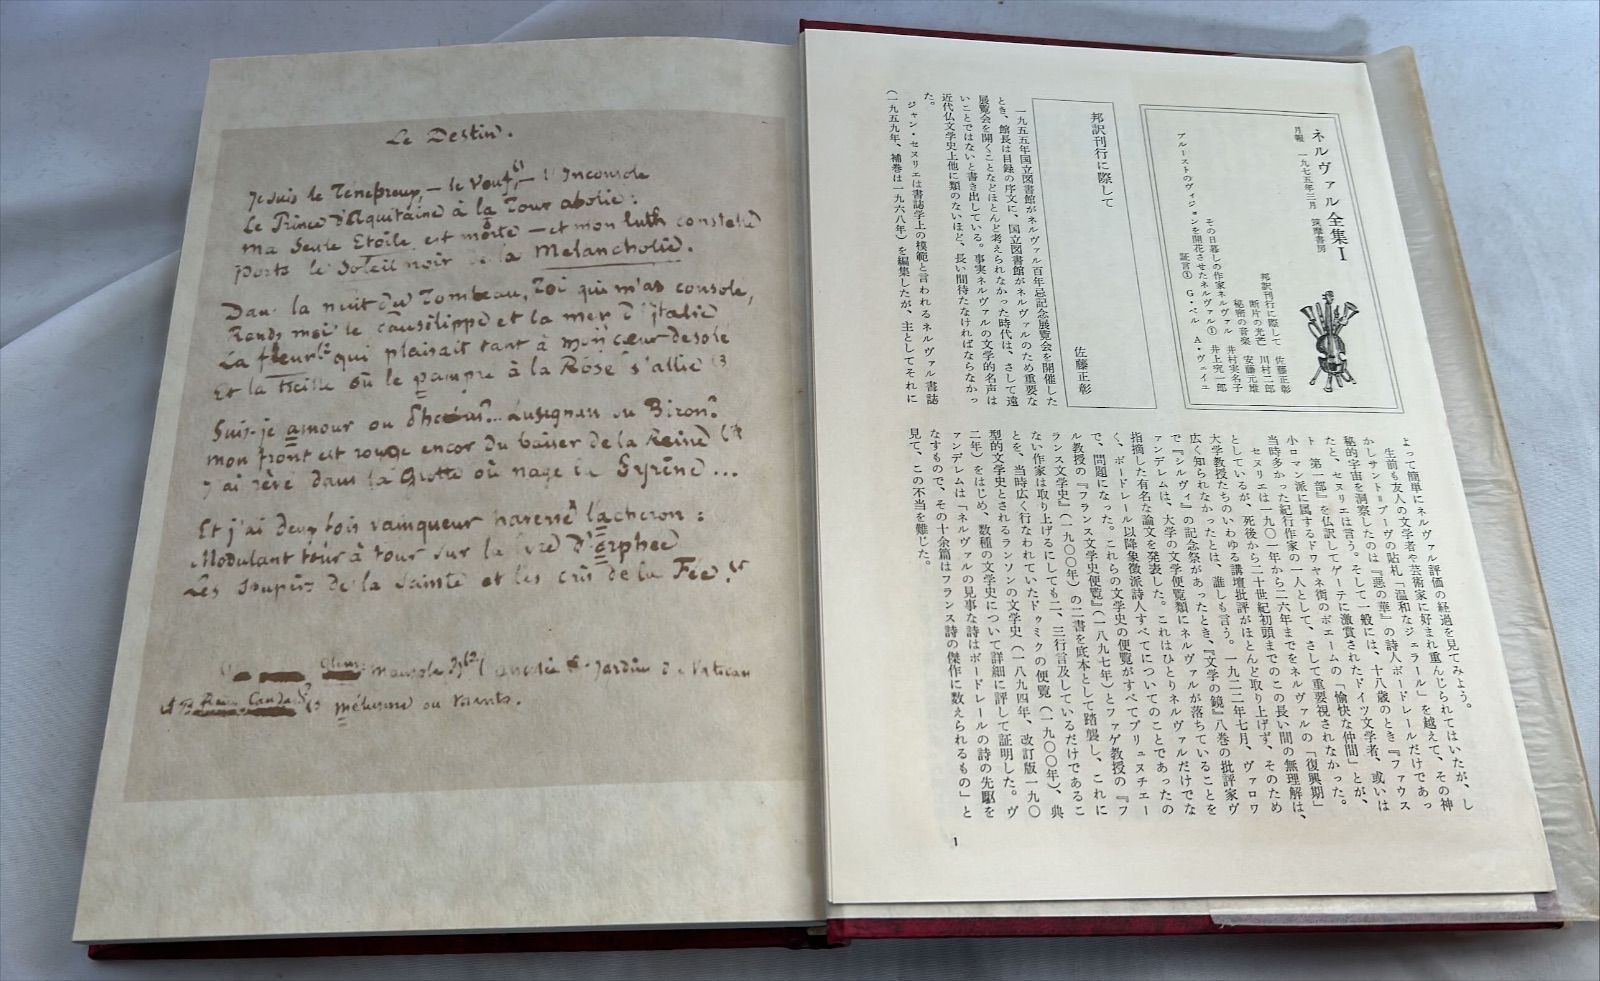 Le Destin.
Je suis le Ténébreux, – le Veuf, – l'Inconsolé
Le Prince d'Aquitaine à la Tour abolie :
Ma Seule Etoile est morte – et mon luth constellé
Porte le Soleil noir de la Melancholie.
Dans la nuit du Tombeau, Toi qui m'as consolé,
Rends moi le Pausilippe et la mer d'Italie
La fleur qui plaisait tant à mon cœur desolé
Et la treille où le pampre à la Rose s'allie
Suis-je amour ou Phœbus?... Lusignan ou Biron?
Mon front est rouge encor du baiser de la Reine
J'ai rêvé dans la Grotte où nage la Syrène...
Et j'ai deux fois vainqueur traversé l'acheron :
Modulant tour à tour sur la lyre d'orphée
Les Soupirs de la Sainte et les cris de la Fée.
Mausole jardin du Vatican
mélusine ou
ネルヴァル全集 I
月報 一九七五年三月 筑摩書房
邦訳刊行に際して 佐藤正彰
断片の光芒 川村二郎
秘密の音楽 安藤元雄
その日暮しの作家ネルヴァル 井村実名子
プルーストのヴィジョンを開花させたネルヴァル① 井上究一郎
証言① G・ベル A・ヴェイユ
邦訳刊行に際して
佐藤正彰
一九五五年国立図書館がネルヴァル百年忌記念展覧会を開催した
とき、館長は目録の序文に、国立図書館がネルヴァルのため重要な
展覧会を開くことなどほとんど考えられなかった時代は、さして遠
いことではないと書き出している。事実ネルヴァルの文学的名声は
近代仏文学史上他に類のないほど、長い間待たなければならなかっ
た。
ジャン・セヌリエは書誌学上の模範と言われるネルヴァル書誌
(一九五九年、補巻は一九六八年)を編集したが、主としてそれに
よって簡単にネルヴァル評価の経過を見てみよう。
生前も友人の文学者や芸術家に好まれ重んじられてはいたが、し
かしサント=ブーヴの貼札「温和なジェラール」を越えて、その神
秘的宇宙を洞察したのは『悪の華』の詩人ボードレールだけであっ
たと、セヌリエは言う。そして一般には、十八歳のとき『ファウス
ト 第一部』を仏訳してゲーテに激賞されたドイツ文学者、或いは
小ロマン派に属するドワヤネ街のボエームの「愉快な仲間」とか、
当時多かった紀行作家の一人として、さして重要視されなかった。
セヌリエは一九〇一年から二六年までをネルヴァルの「復興期」
としているが、死後から二十世紀初頭までのこの長い間の無理解は、
大学教授たちのいわゆる講壇批評がほとんど取り上げず、そのため
広く知られなかったとは、誰しも言う。一九二二年七月、ヴァロワ
で『シルヴィ』の記念祭があったとき、『文学の鏡』八巻の批評家ヴ
ァンデレムは、大学の文学便覧類にネルヴァルが落ちていることを
指摘した有名な論文を発表した。これはひとりネルヴァルだけでな
く、ボードレール以降象徴派詩人すべてについてのことであったの
で、問題になった。これらの文学史の便覧がすべてブリュヌチエー
ル教授の『フランス文学史便覧』(一八九七年)とファゲ教授の『フ
ランス文学史』(一九〇〇年)の二書を底本として踏襲し、これに
ない作家は取り上げるにしても二、三行言及しているだけであるこ
とを、当時広く行なわれていたドゥミクの便覧(一九〇〇年)、典
型的文学史とされるランソンの文学史(一八九四年、改訂版一九〇
二年)をはじめ、数種の文学史について詳細に評して証明した。ヴ
ァンデレムは「ネルヴァルの見事な詩はボードレールの詩の先駆を
なすもので、その十余篇はフランス詩の傑作に数えられるもの」と
見て、この不当を難じた。
1